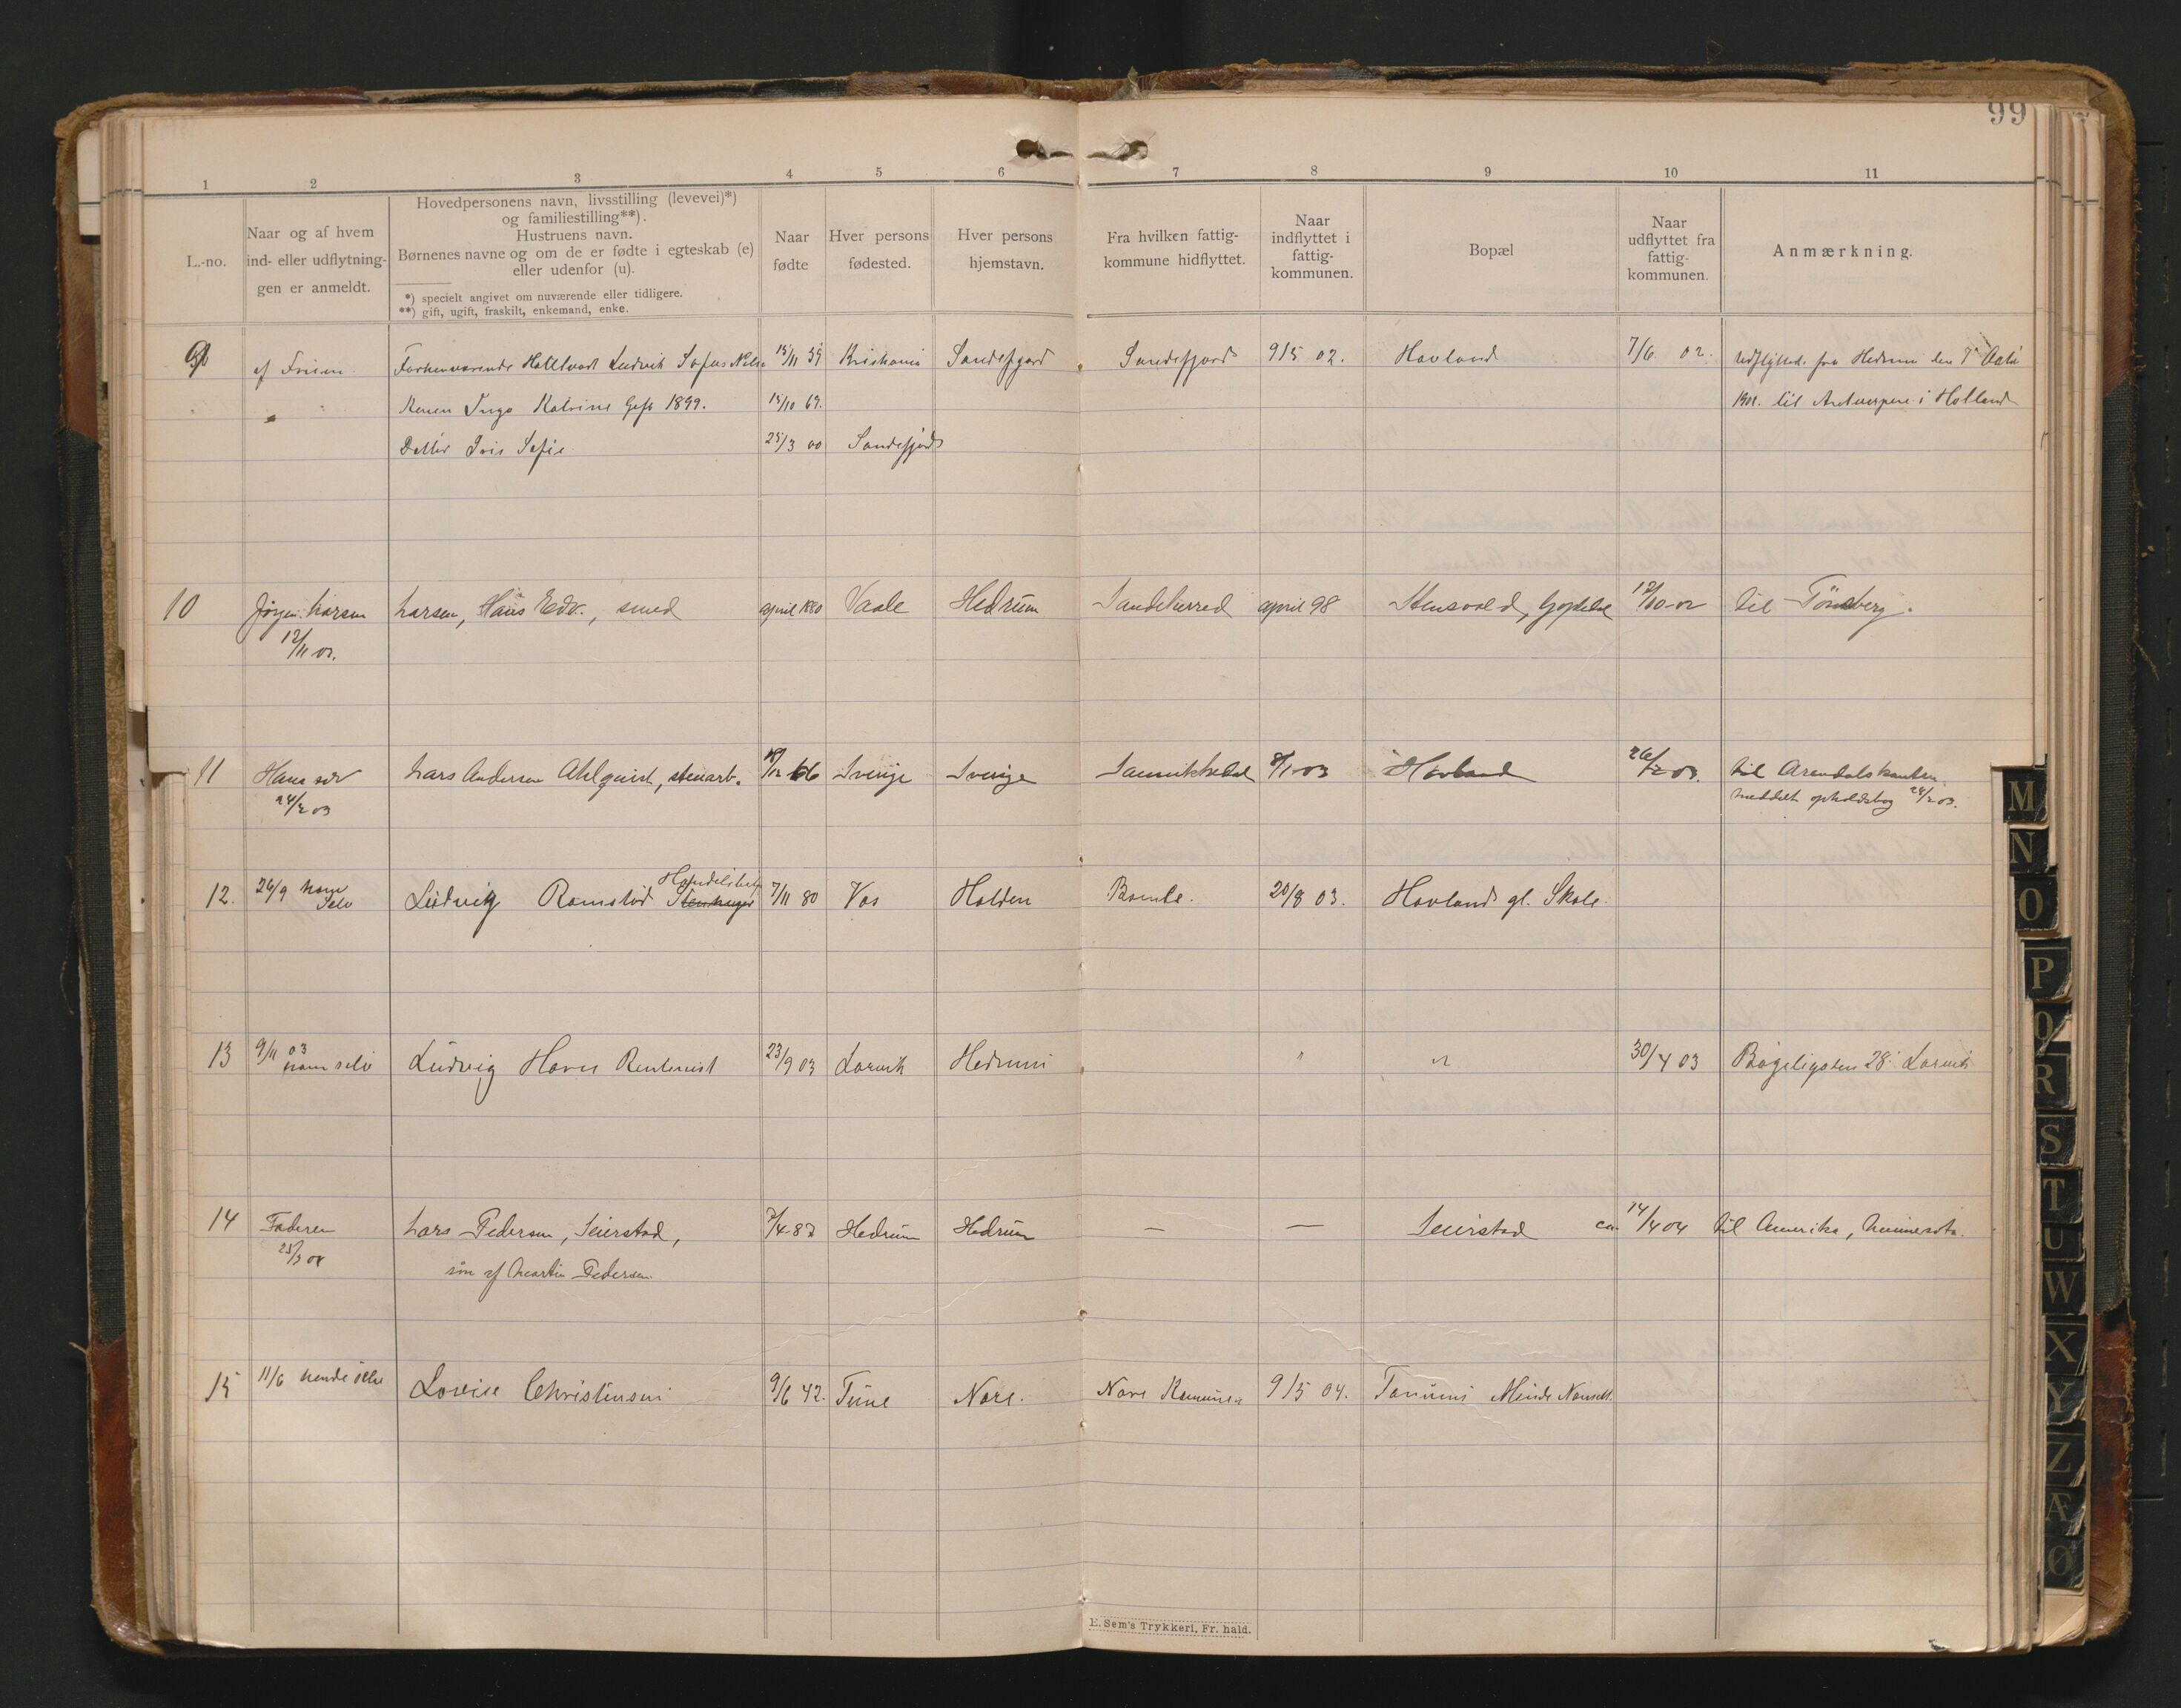 99
1 2 3 4 5 6 7 8 9 10 11
L.-no.
Naar og af hvem
ind- eller udflytnin-
gen er anmeldt.
Hovedpersonens navn, livsstilling (levevei)*)
og familiestilling**).
Hustruens navn.
Børnenes navne og om de er fødte i egteskab (e)
eller udenfor (u).
*) specielt angivet om nuværende eller tidligere.
**) gift, ugift, fraskilt, enkemand, enke.
Naar
fødte
Hver persons
fødested.
Hver persons
hjemstavn.
Fra hvilken fattig-
kommune hidflyttet.
Naar
indflyttet i
fattig-
kommunen.
Bopæl
Naar
udflyttet fra
fattig-
kommunen.
Anmærkning.
9 af Ludvik Sofus 15/11 59 Kristiania Sandefjord Sandefjord 9/5 02. Hovland 7/6 02. udflyttede fra Hedrum den
Inga Katrine Gift 1899. 15/10 69. til Antwerpen i Holland
Datter Iris Sofie 25/3 00 Sandefjord
10 Jørgen Larsen Larsen, Hans Edv., smed april 1880 Vaale Hedrum Sandeherred april 98 12/10-02 til Tönsberg.
12/11 02.
11 Hans selv Lars Andersen Ahlquist, stenarb. 66 Sverige Sverige 8/1-03 Hovland 26/2 03. til Arendalskanten
24/2 03 meddelt opholdsbog 24/2 03.
Handelsbet
12. 26/9 ham Ludvig Ramstad 7/11 80 Vos Holden Bamle. 20/8 03. Hovland gl. Skole.
selv
13 9/11 03 Ludvig Havn 23/9 03 Larvik Hedrum " " 30/4 03 28 Larvik
ham selv
14 Faderen Lars Pedersen, Seierstad, Hedrum Hedrum — — Seierstad ca. 14/4 04 til Amerika, Minnesota.
søn af Martin Pedersen
15 11/6 hende selv Lovise Christensen 9/6 42. Tune Nore. Nore Komune 9/5 04. Tanum Minde
E. Sem's Trykkeri, Fr. hald.
M
N
O
P
Q
R
S
T
U
W
X
Y
Z
Æ
Ø